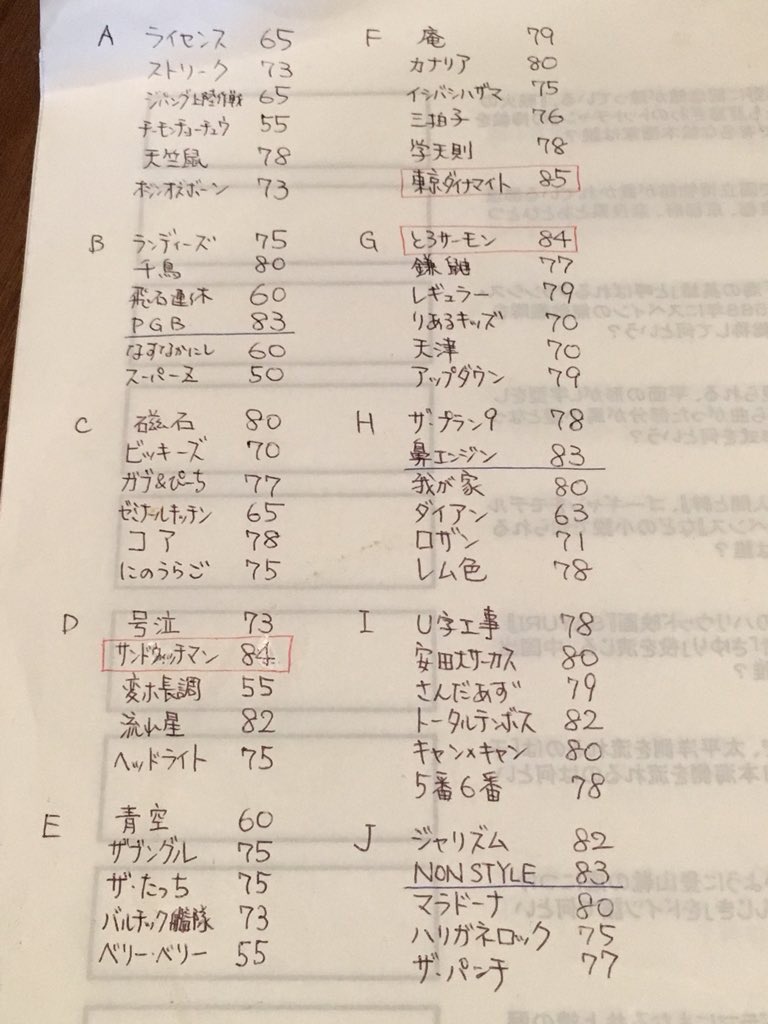 A ライセンス 65
ストリーク 73
ジパング上陸作戦 65
チーモンチョーチュウ 55
天竺鼠 78
ボーン 73
B ランディーズ 75
千鳥 80
飛石連休 60
PGB 83
なすなかにし 60
スーパーZ 50
C 磁石 80
ビッキーズ 70
ガブ&ぴーち 77
ゼミナールキッチン 65
コア 78
にのうらご 75
D 号泣 73
サンドウィッチマン 84
変ホ長調 55
流れ星 82
ヘッドライト 75
E 青空 60
ザブングル 75
ザ・たっち 75
バルチック艦隊 73
ベリー・ベリー 55
F 庵 79
カナリア 80
イシバシハザマ 75
三拍子 76
学天則 78
東京ダイナマイト 85
G とろサーモン 84
鎌鼬 77
レギュラー 79
りあるキッズ 70
天津 70
アップダウン 79
H ザ・プラン9 78
鼻エンジン 83
我が家 80
ダイアン 63
ロザン 71
レム色 78
I U字工事 78
安田大サーカス 80
さんだあず 79
トータルテンボス 82
キャン×キャン 80
5番6番 78
J ジャリズム 82
NON STYLE 83
マラドーナ 80
ハリガネロック 75
ザ・パンチ 77